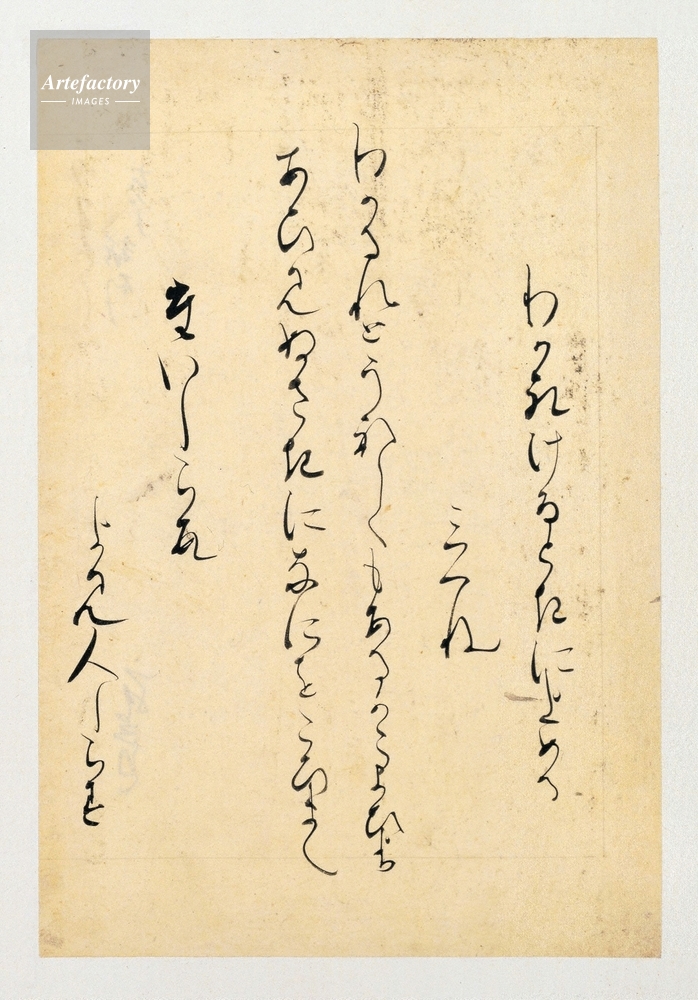 わかれけるときによめる
みつね
わかるれとうれしくもあるかこよひより
あひみぬさきになにをこひまし
たいしらす
よみ人しらす
Artefactory
IMAGES